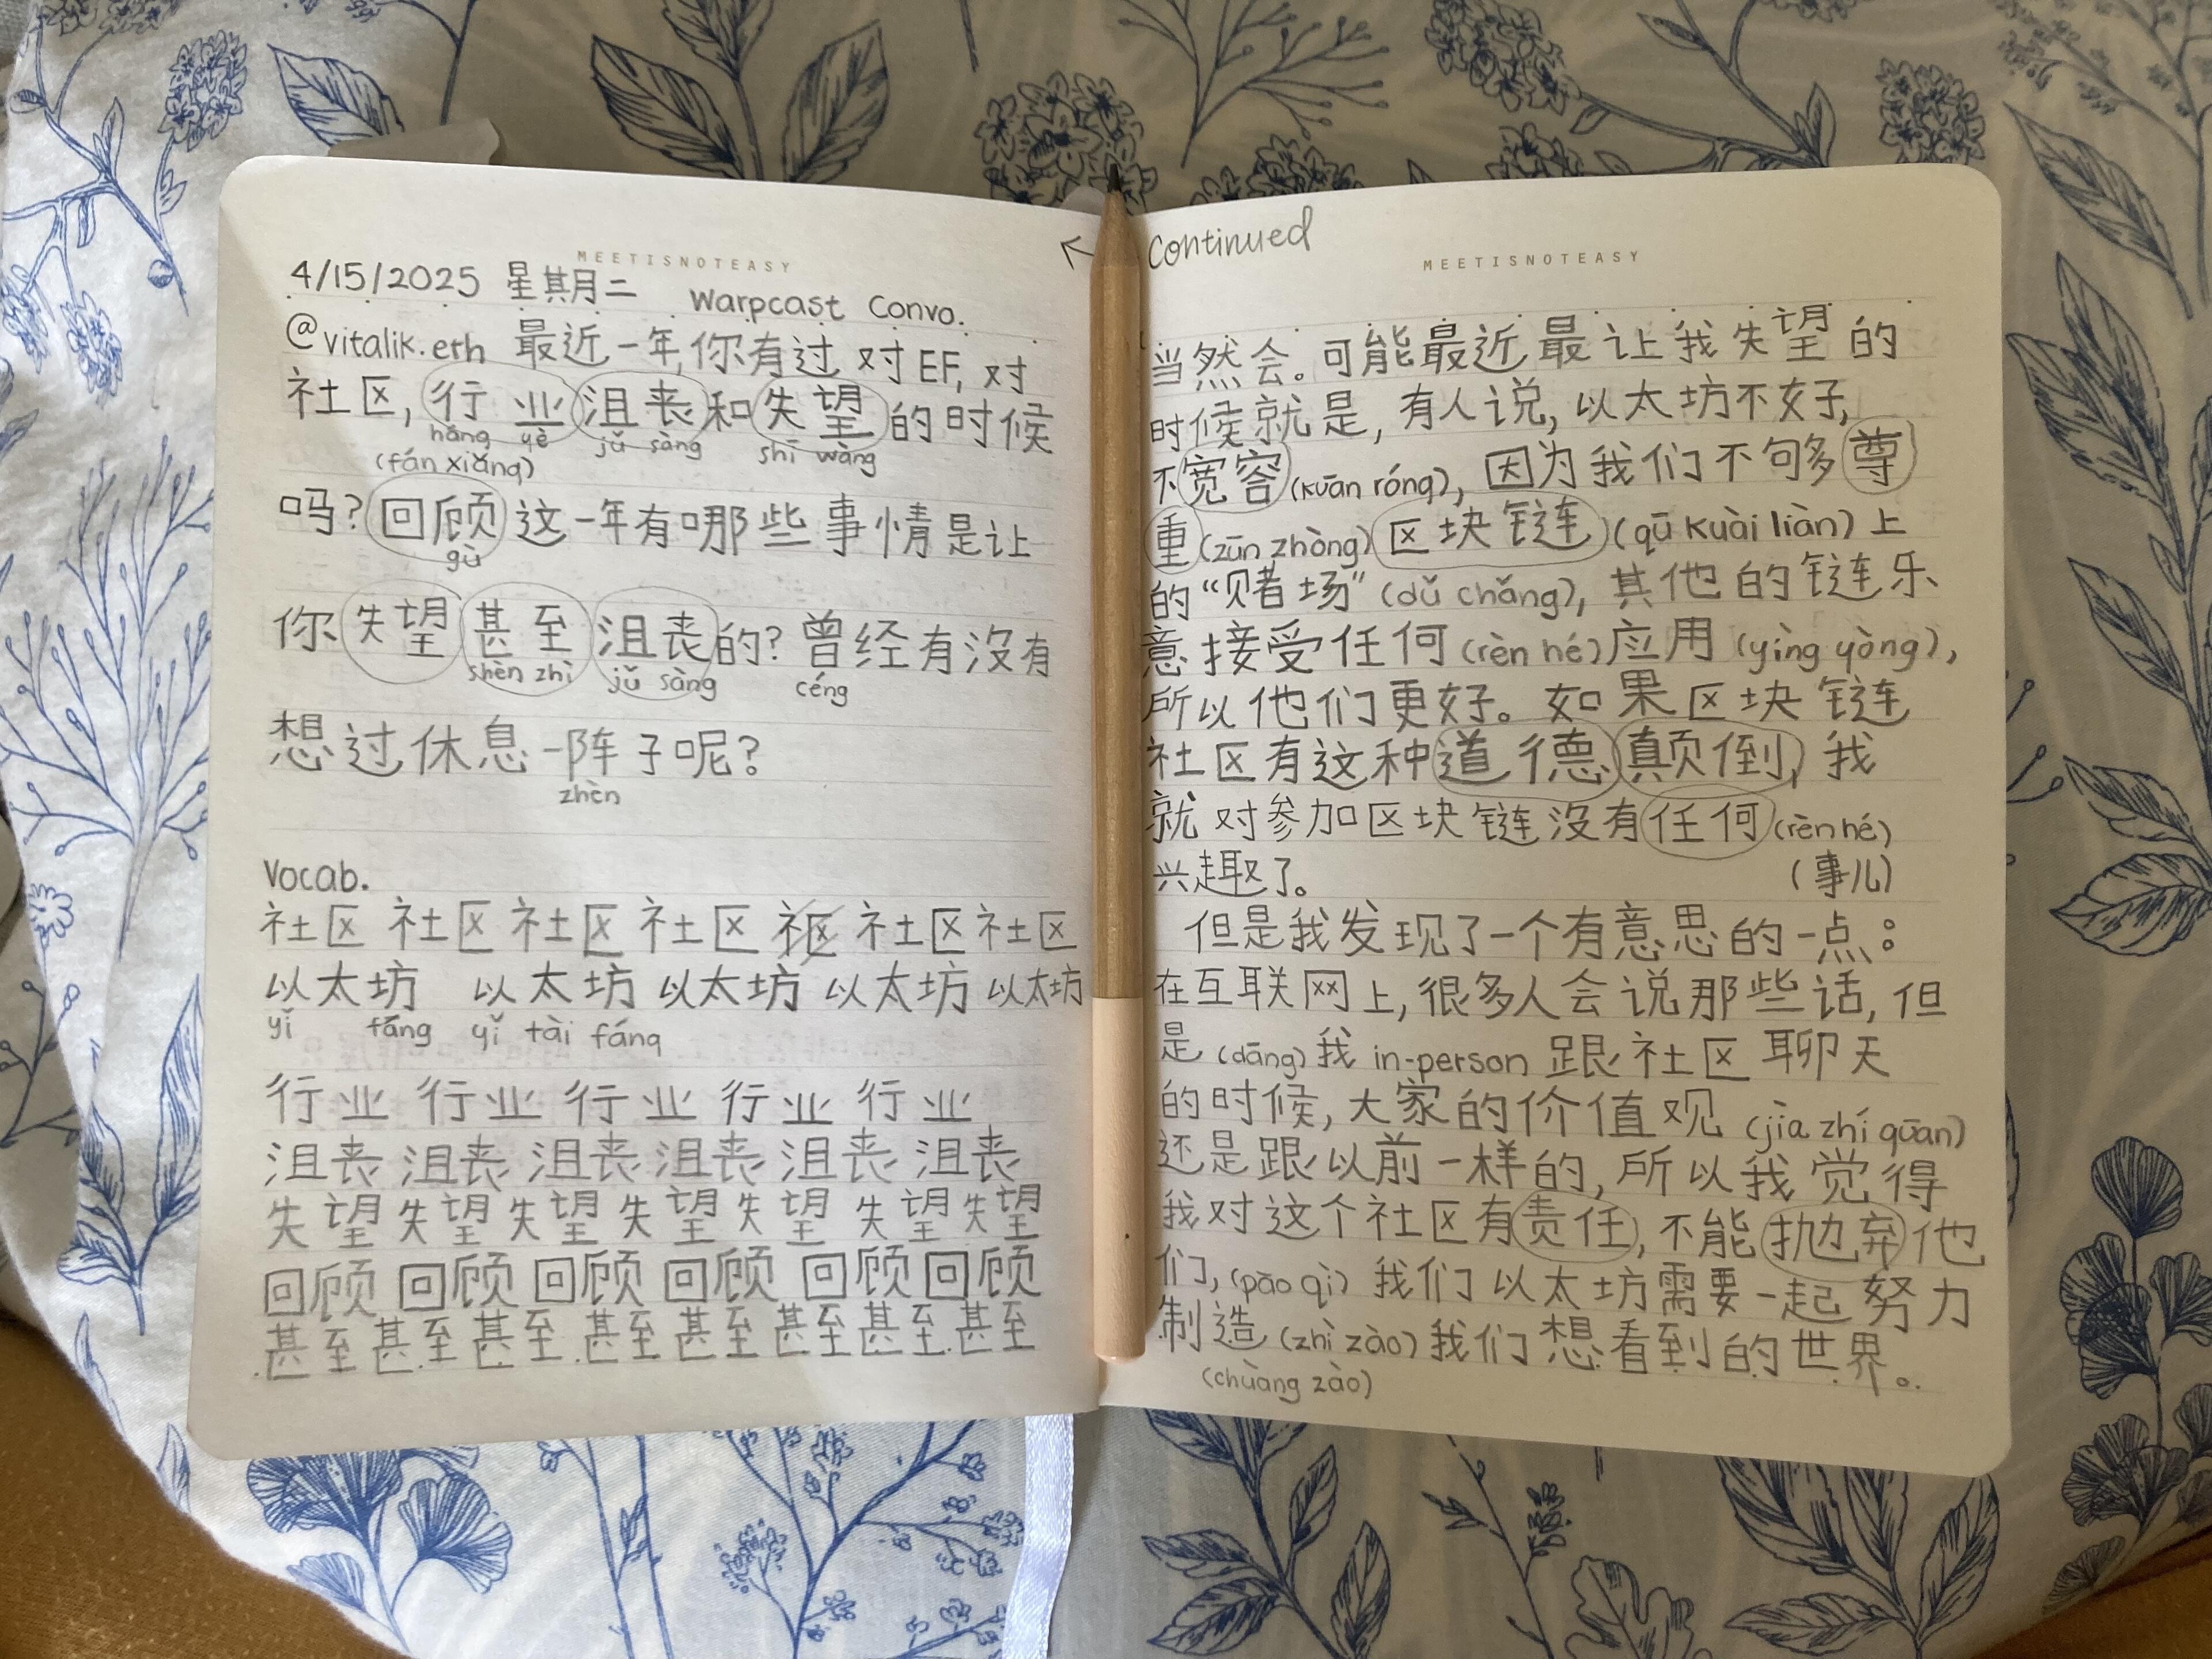 MEETISNOTEASY
4/15/2025 星期二 Warpcast Convo.
@vitalik.eth 最近一年,你有过对EF,对
社区,行业沮丧和失望的时候
háng yè jǔ sàng shī wàng
(fán xiǎng)
吗?回顾这一年有哪些事情是让
gù
你失望甚至沮丧的?曾经有没有
shèn zhì jǔ sàng céng
想过休息一阵子呢?
zhèn
Vocab.
社区 社区 社区 社区 社区 社区
以太坊 以太坊 以太坊 以太坊 以太坊
yǐ fāng yǐ tài fáng
行业 行业 行业 行业 行业
沮丧 沮丧 沮丧 沮丧 沮丧 沮丧
失望 失望 失望 失望 失望 失望 失望
回顾 回顾 回顾 回顾 回顾 回顾
甚至 甚至 甚至 甚至 甚至 甚至 甚至 甚至
← Continued
MEETISNOTEASY
当然会。可能最近最让我失望的
时候就是,有人说,以太坊不好,
不宽容(kuān róng),因为我们不句多尊
重(zūn zhòng)区块链(qū kuài liàn)上
的“赌场”(dǔ chǎng),其他的链乐
意接受任何(rèn hé)应用(yìng yòng),
所以他们更好。如果区块链
社区有这种道德颠倒,我
就对参加区块链没有任何(rèn hé)
兴趣了。 (事儿)
但是我发现了一个有意思的一点:
在互联网上,很多人会说那些话,但
是(dāng)我in-person跟社区聊天
的时候,大家的价值观(jìa zhí qūan)
还是跟以前一样的,所以我觉得
我对这个社区有责任,不能抛弃他
们,(pāo qì)我们以太坊需要一起努力
制造(zhì zào)我们想看到的世界。
(chùang zào)